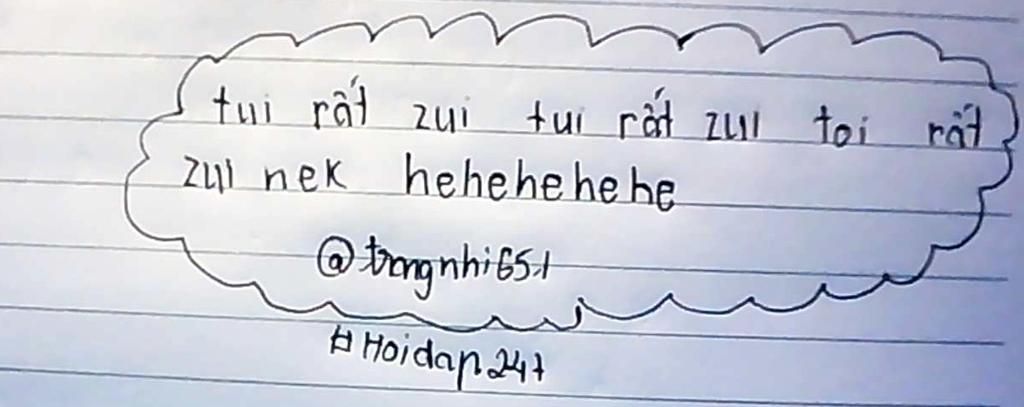 tui rất zui tui rất zui toi rất
zui nek hehehehehe
@trongnhi65.1
#Hoidap247